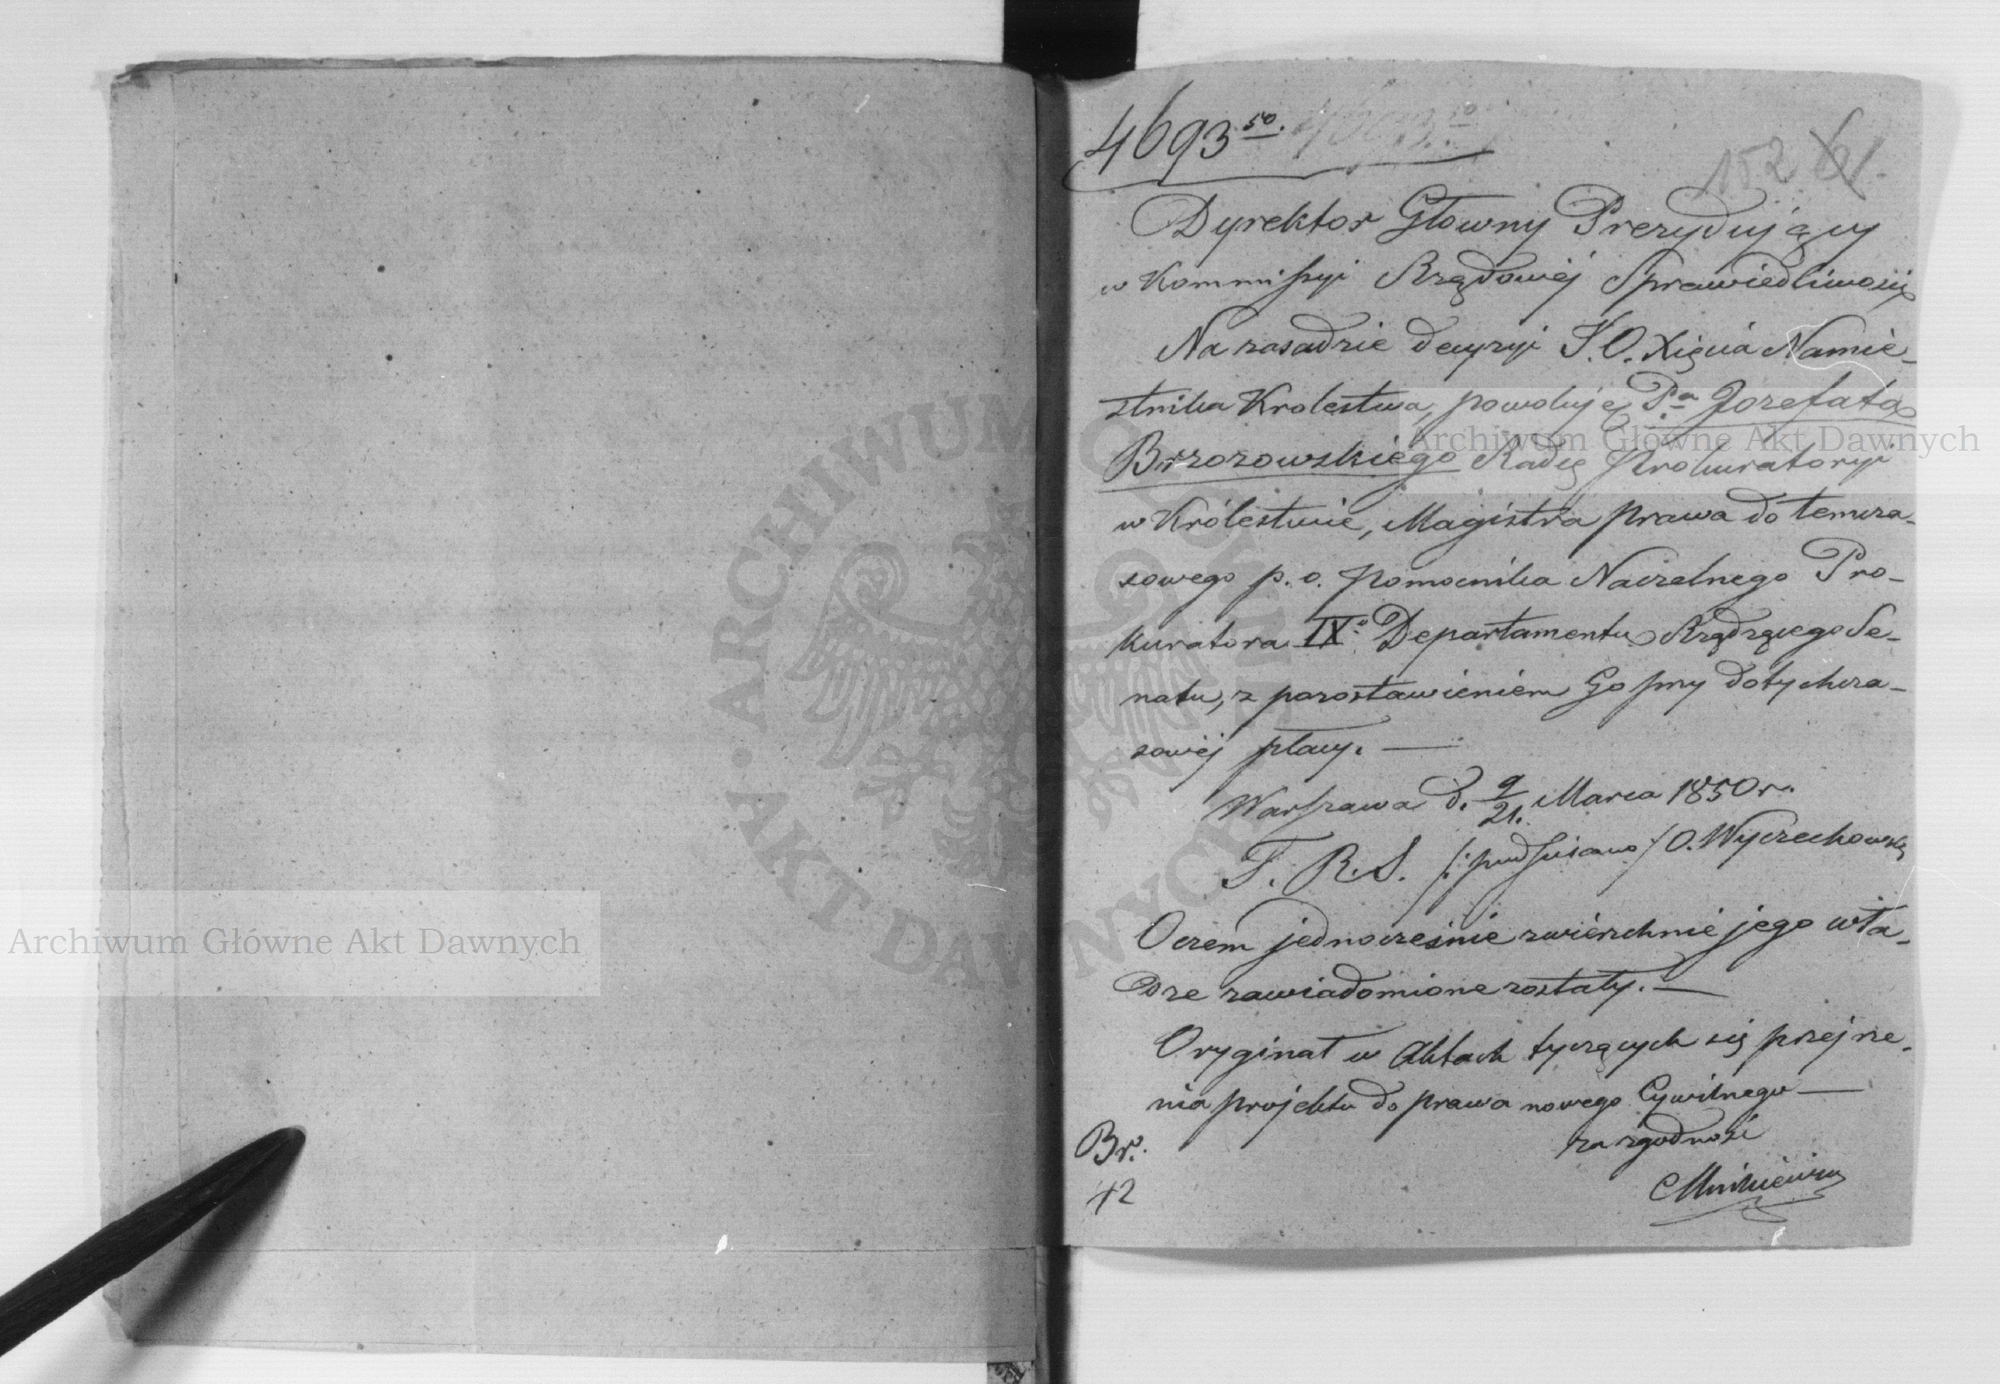 4693 50.
152 61.
Dyrektor Głowny Prezydujący
w Kommissyi Rządowéj Sprawiedliwości
Na zasadzie decyzyi J. O. Xięcia Namie-
stnika Krolestwa, powołuję Pa Jozefata
Brzozowskiego Radcę Prokuratoryi
w Królestwie, Magistra prawa do temcza-
sowego p. o. Pomocnika Naczelnego Pro-
kuratora IXo Departamentu Rządzącego Se-
natu, z pozostawieniem Go przy dotychcza-
sowéj płacy. —
Warszawa d. 9/21. Marca 1850 r.
T. R. S. /: podpisano :/ O. Wyczechowski
O czem jednocześnie zwierzchnie jego wła-
dze zawiadomione zostały. —
Oryginał w Aktach tyczących się przejrze-
nia projektu do prawa nowego Cywilnego —
za zgodność
Br.
42
ARCHIWUM GŁÓWNE AKT DAWNYCH
Archiwum Główne Akt Dawnych
Archiwum Główne Akt Dawnych